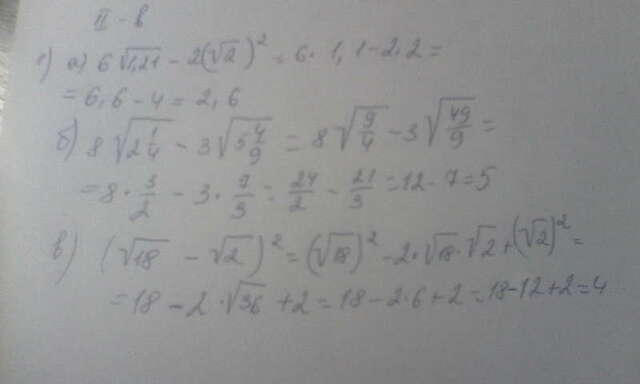 II - в
1) а) 6√1,21 - 2(√2)² = 6 · 1,1 - 2·2 =
= 6,6 - 4 = 2,6
б) 8√2 1/4 - 3√5 4/9 = 8√9/4 - 3√49/9 =
= 8 · 3/2 - 3 · 7/3 = 24/2 - 21/3 = 12 - 7 = 5
в) (√18 - √2)² = (√18)² - 2·√18·√2 + (√2)² =
= 18 - 2·√36 + 2 = 18 - 2·6 + 2 = 18 - 12 + 2 = 4